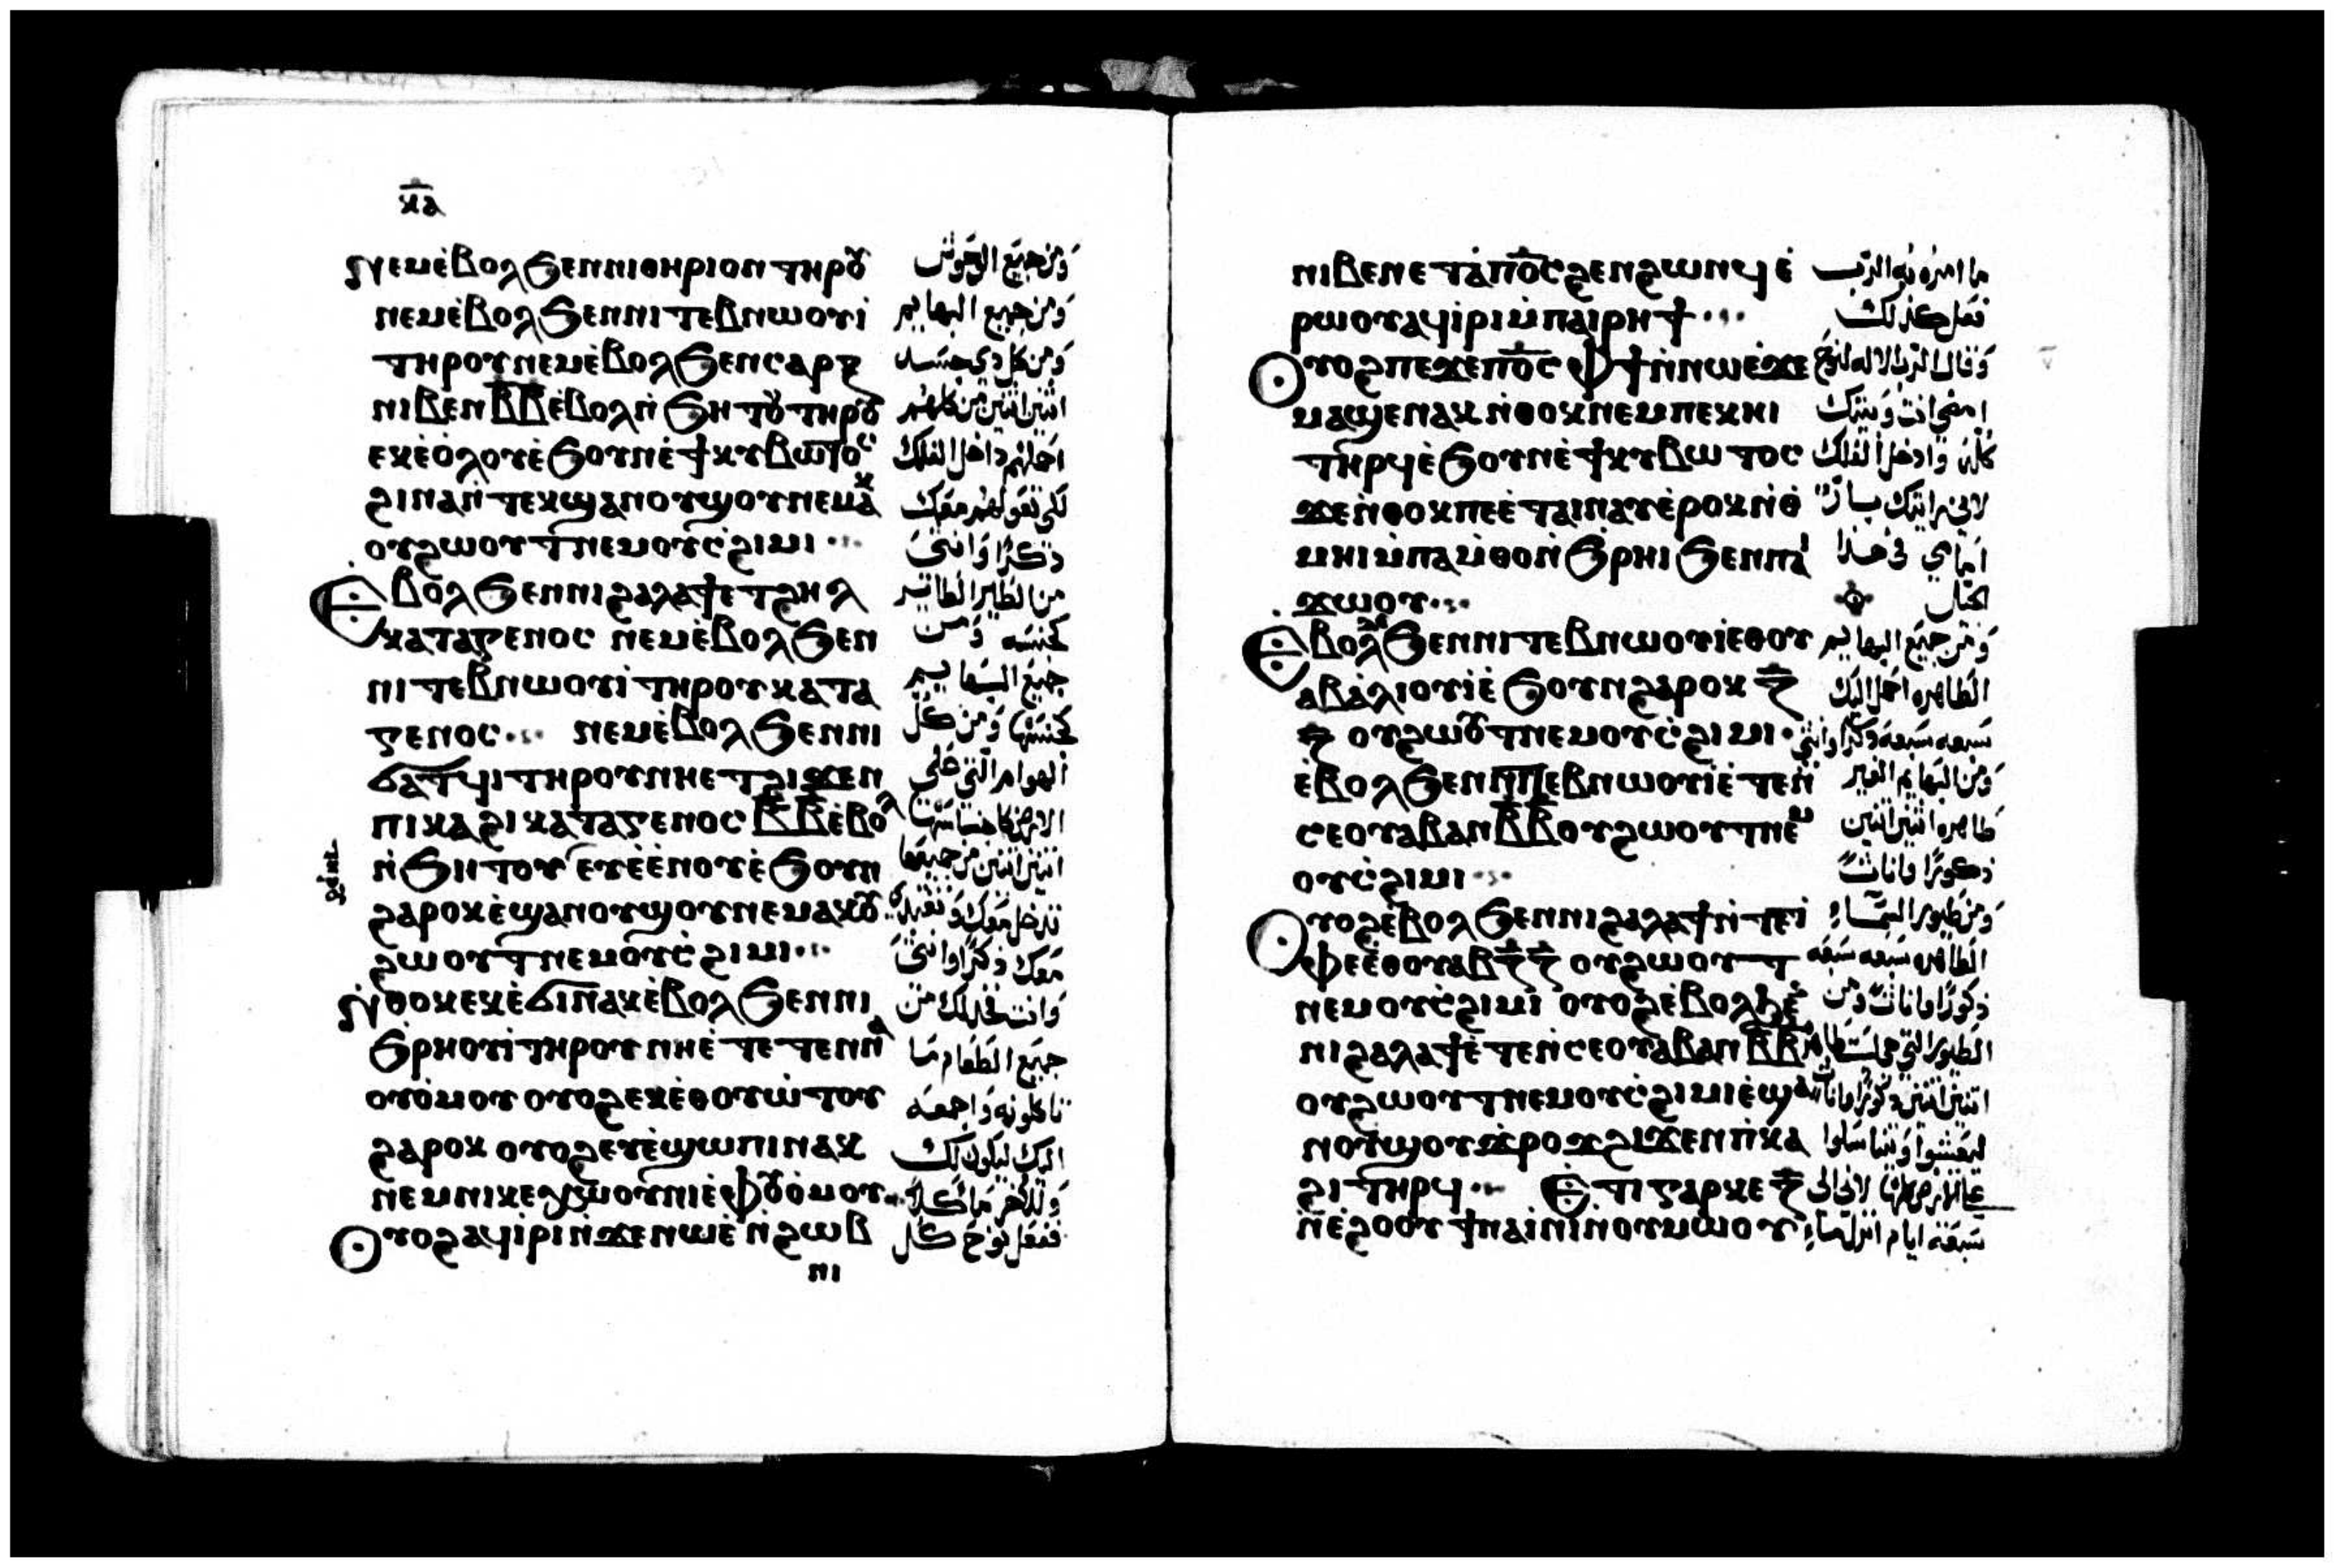 ⲕⲁ
ⲛⲉⲙⲉ̀ⲃⲟⲗϧⲉⲛⲛⲓⲑⲏⲣⲓⲟⲛ ⲧⲏⲣⲟⲩ
ⲛⲉⲙⲉ̀ⲃⲟⲗϧⲉⲛⲛⲓⲧⲉⲃⲛⲱⲟⲩⲓ̀
ⲧⲏⲣⲟⲩⲛⲉⲙⲉ̀ⲃⲟⲗϧⲉⲛⲥⲁⲣⲝ
ⲛⲓⲃⲉⲛ ⲃ̅ⲃ̅ⲉ̀ⲃⲟⲗⲛ̀ϧⲏⲧⲟⲩ ⲧⲏⲣⲟⲩ
ⲉⲕⲉ̀ⲟ̀ⲗⲟⲩⲉ̀ϧⲟⲩⲛⲉ̀ϯⲕⲩⲃⲱⲧⲟⲥ
ϩⲓⲛⲁⲛ̀ⲧⲉⲕϣⲁⲛⲟⲩϣⲟⲩⲛⲉⲙⲁⲕ
ⲟⲩϩⲱⲟⲩⲧⲛⲉⲙⲟⲩⲥ̀ϩⲓⲙⲓ
ⲉⲃⲟⲗϧⲉⲛⲛⲓϩⲁⲗⲁϯⲉ̀ⲧϩⲏⲗ
ⲕⲁⲧⲁⲅⲉⲛⲟⲥ ⲛⲉⲙⲉ̀ⲃⲟⲗϧⲉⲛ
ⲛⲓⲧⲉⲃⲛⲱⲟⲩⲓ̀ ⲧⲏⲣⲟⲩ ⲕⲁⲧⲁ
ⲅⲉⲛⲟⲥ ⲛⲉⲙⲉ̀ⲃⲟⲗϧⲉⲛⲛⲓ
ϭⲁⲧϥⲓ ⲧⲏⲣⲟⲩ ⲛⲏⲉⲧϩⲓϫⲉⲛ
ⲡⲓⲕⲁϩⲓ ⲕⲁⲧⲁⲅⲉⲛⲟⲥ ⲃ̅ⲃ̅ⲉ̀ⲃⲟⲗ
ⲛ̀ϧⲏⲧⲟⲩ ⲉⲩⲉ̀ⲉ̀ⲛⲟⲩⲉ̀ϧⲟⲩⲛ
ϩⲁⲣⲟⲕⲉ̀ϣⲁⲛⲟⲩϣⲟⲩⲛⲉⲙⲁⲕ ⲟⲩ
ϩⲱⲟⲩⲧⲛⲉⲙⲟⲩⲥ̀ϩⲓⲙⲓ
ⲛ̀ⲑⲟⲕⲉⲕⲉ̀ϭⲓⲛⲁⲕⲉ̀ⲃⲟⲗϧⲉⲛⲛⲓ
ϧⲣⲏⲟⲩⲓ̀ ⲧⲏⲣⲟⲩ ⲛⲏⲉ̀ⲧⲉⲧⲉⲛⲛⲁ
ⲟⲩⲟ̀ⲙⲟⲩ ⲟⲩⲟϩⲉⲕⲉ̀ⲑⲟⲩⲱ̀ⲧⲟⲩ
ϩⲁⲣⲟⲕ ⲟⲩⲟϩⲉⲩⲉ̀ϣⲱⲡⲓⲛⲁⲕ
ⲛⲉⲙⲛⲓⲕⲉⲭⲱⲟⲩⲛⲓⲉ̀ⲫⲟⲩⲟ̀ⲙⲟⲩ
ⲟⲩⲟϩⲁϥⲓ̀ⲣⲓⲛ̀ϫⲉⲛⲱⲉ̀ ⲛ̀ϩⲱⲃ
ⲛⲓ
وَمن جميع الوحوش
وَمن جميع البهايم
وَمن كل دي جسد
اثنين اثنين من كلهم
ادخلهم داخل الفلك
لكي تعولهم معك
ذكرًا وَانثىَ
من الطير الطاير
كجنسه وَمن
جميع البهايم
كجنسها وَمن كل
الهوام التي على
الارض كاجناسها
اثنين اثنين من جميعها
معك ذكرًا وانثىَ
وَانت فخذ لك من
جميع الطعام مَا
تاكلونه وَاجمعه
اليك ليكون لك
ففعل نوح كل
ⲛⲓⲃⲉⲛⲉⲧⲁ̀ⲡⲟ̅ⲥ̅ϩⲉⲛϩⲱⲛϥⲉ̀
ⲣⲱⲟⲩⲁϥⲓ̀ⲣⲓⲙ̀ⲡⲁⲓⲣⲏϯ
ⲟⲩⲟϩⲡⲉϫⲉⲡⲟ̅ⲥ̅ ⲫϯⲛ̀ⲛⲱⲉ̀ϫⲉ
ⲙⲁϣⲉⲛⲁⲕ ⲛ̀ⲑⲟⲕⲛⲉⲙⲡⲉⲕⲏⲓ
ⲧⲏⲣϥⲉ̀ϧⲟⲩⲛⲉ̀ϯⲕⲩⲃⲱⲧⲟⲥ
ϫⲉⲛ̀ⲑⲟⲕⲡⲉⲉ̀ⲧⲁⲓⲛⲁⲩⲉ̀ⲣⲟⲕⲛ̀ⲑ
ⲙⲏⲓⲙ̀ⲡⲁⲙ̀ⲑⲟⲛ̀ϧⲣⲏⲓϧⲉⲛⲡⲁⲓ
ϫⲱⲟⲩ
ⲉⲃⲟⲗϫⲉϧⲉⲛⲛⲓⲧⲉⲃⲛⲱⲟⲩⲓⲉⲑⲟⲩ
ⲁⲃⲁ̀ⲗⲓⲟⲩⲓⲉ̀ϧⲟⲩⲛϩⲁⲣⲟⲕ ⲍ̅
ⲍ̅ ⲟⲩϩⲱⲟⲩⲧⲛⲉⲙⲟⲩⲥ̀ϩⲓⲙⲓ
ⲉ̀ⲃⲟⲗϧⲉⲛⲛⲓⲧⲉⲃⲛⲱⲟⲩⲓⲉ̀ⲧⲉⲛ̀
ⲥⲉⲟⲩⲁⲃⲁⲛⲃ̅ⲃ̅ⲟⲩϩⲱⲟⲩⲧⲛⲉⲙ
ⲟⲩⲥ̀ϩⲓⲙⲓ
ⲟⲩⲟϩⲉ̀ⲃⲟⲗϧⲉⲛⲛⲓϩⲁⲗⲁϯⲛ̀ⲧⲉⲓ
ⲫⲉⲉ̀ⲑⲟⲩⲁⲃⲍ̅ⲍ̅ ⲟⲩϩⲱⲟⲩⲧ
ⲛⲉⲙⲟⲩⲥ̀ϩⲓⲙⲓ ⲟⲩⲟϩⲉ̀ⲃⲟⲗϧⲉⲛ
ⲛⲓϩⲁⲗⲁϯⲉ̀ⲧⲉⲛ̀ⲥⲉⲟⲩⲁⲃⲁⲛ ⲃ̅ⲃ̅
ⲟⲩϩⲱⲟⲩⲧⲛⲉⲙⲟⲩⲥ̀ϩⲓⲙⲓⲉ̀ϣⲁ
ⲛⲟⲩϣⲟⲩϫ̀ⲣⲟϫϩⲓϫⲉⲛⲡⲓⲕⲁ
ϩⲓ ⲧⲏⲣϥ ⲉⲧⲓⲅⲁⲣⲕⲉ ⲍ̅
ⲛ̀ⲉ̀ϩⲟⲟⲩ ϯⲛⲁⲓ̀ⲛⲓⲛ̀ⲟⲩⲙⲱⲟⲩ
ما امره به الرّب
فعل كذلك
وَقال الرّب الاله لنوح
امضي انت وَبيتك
كله وَادخل الفلك
لاني رايتك بارًّا
امامي في هذا
الجيل
وَمن جميع البهايم
الطاهره ادخل اليك
سَبعه سَبعه ذكرًا وانثى
وَمن البهايم الغير
طاهره اثنين اثنين
ذكورًا واناث
وَمن طيور السَّماء
الطاهره سَبعه سَبعه
ذكورًا واناث وَمن
سَبعة ايام انزل ماء